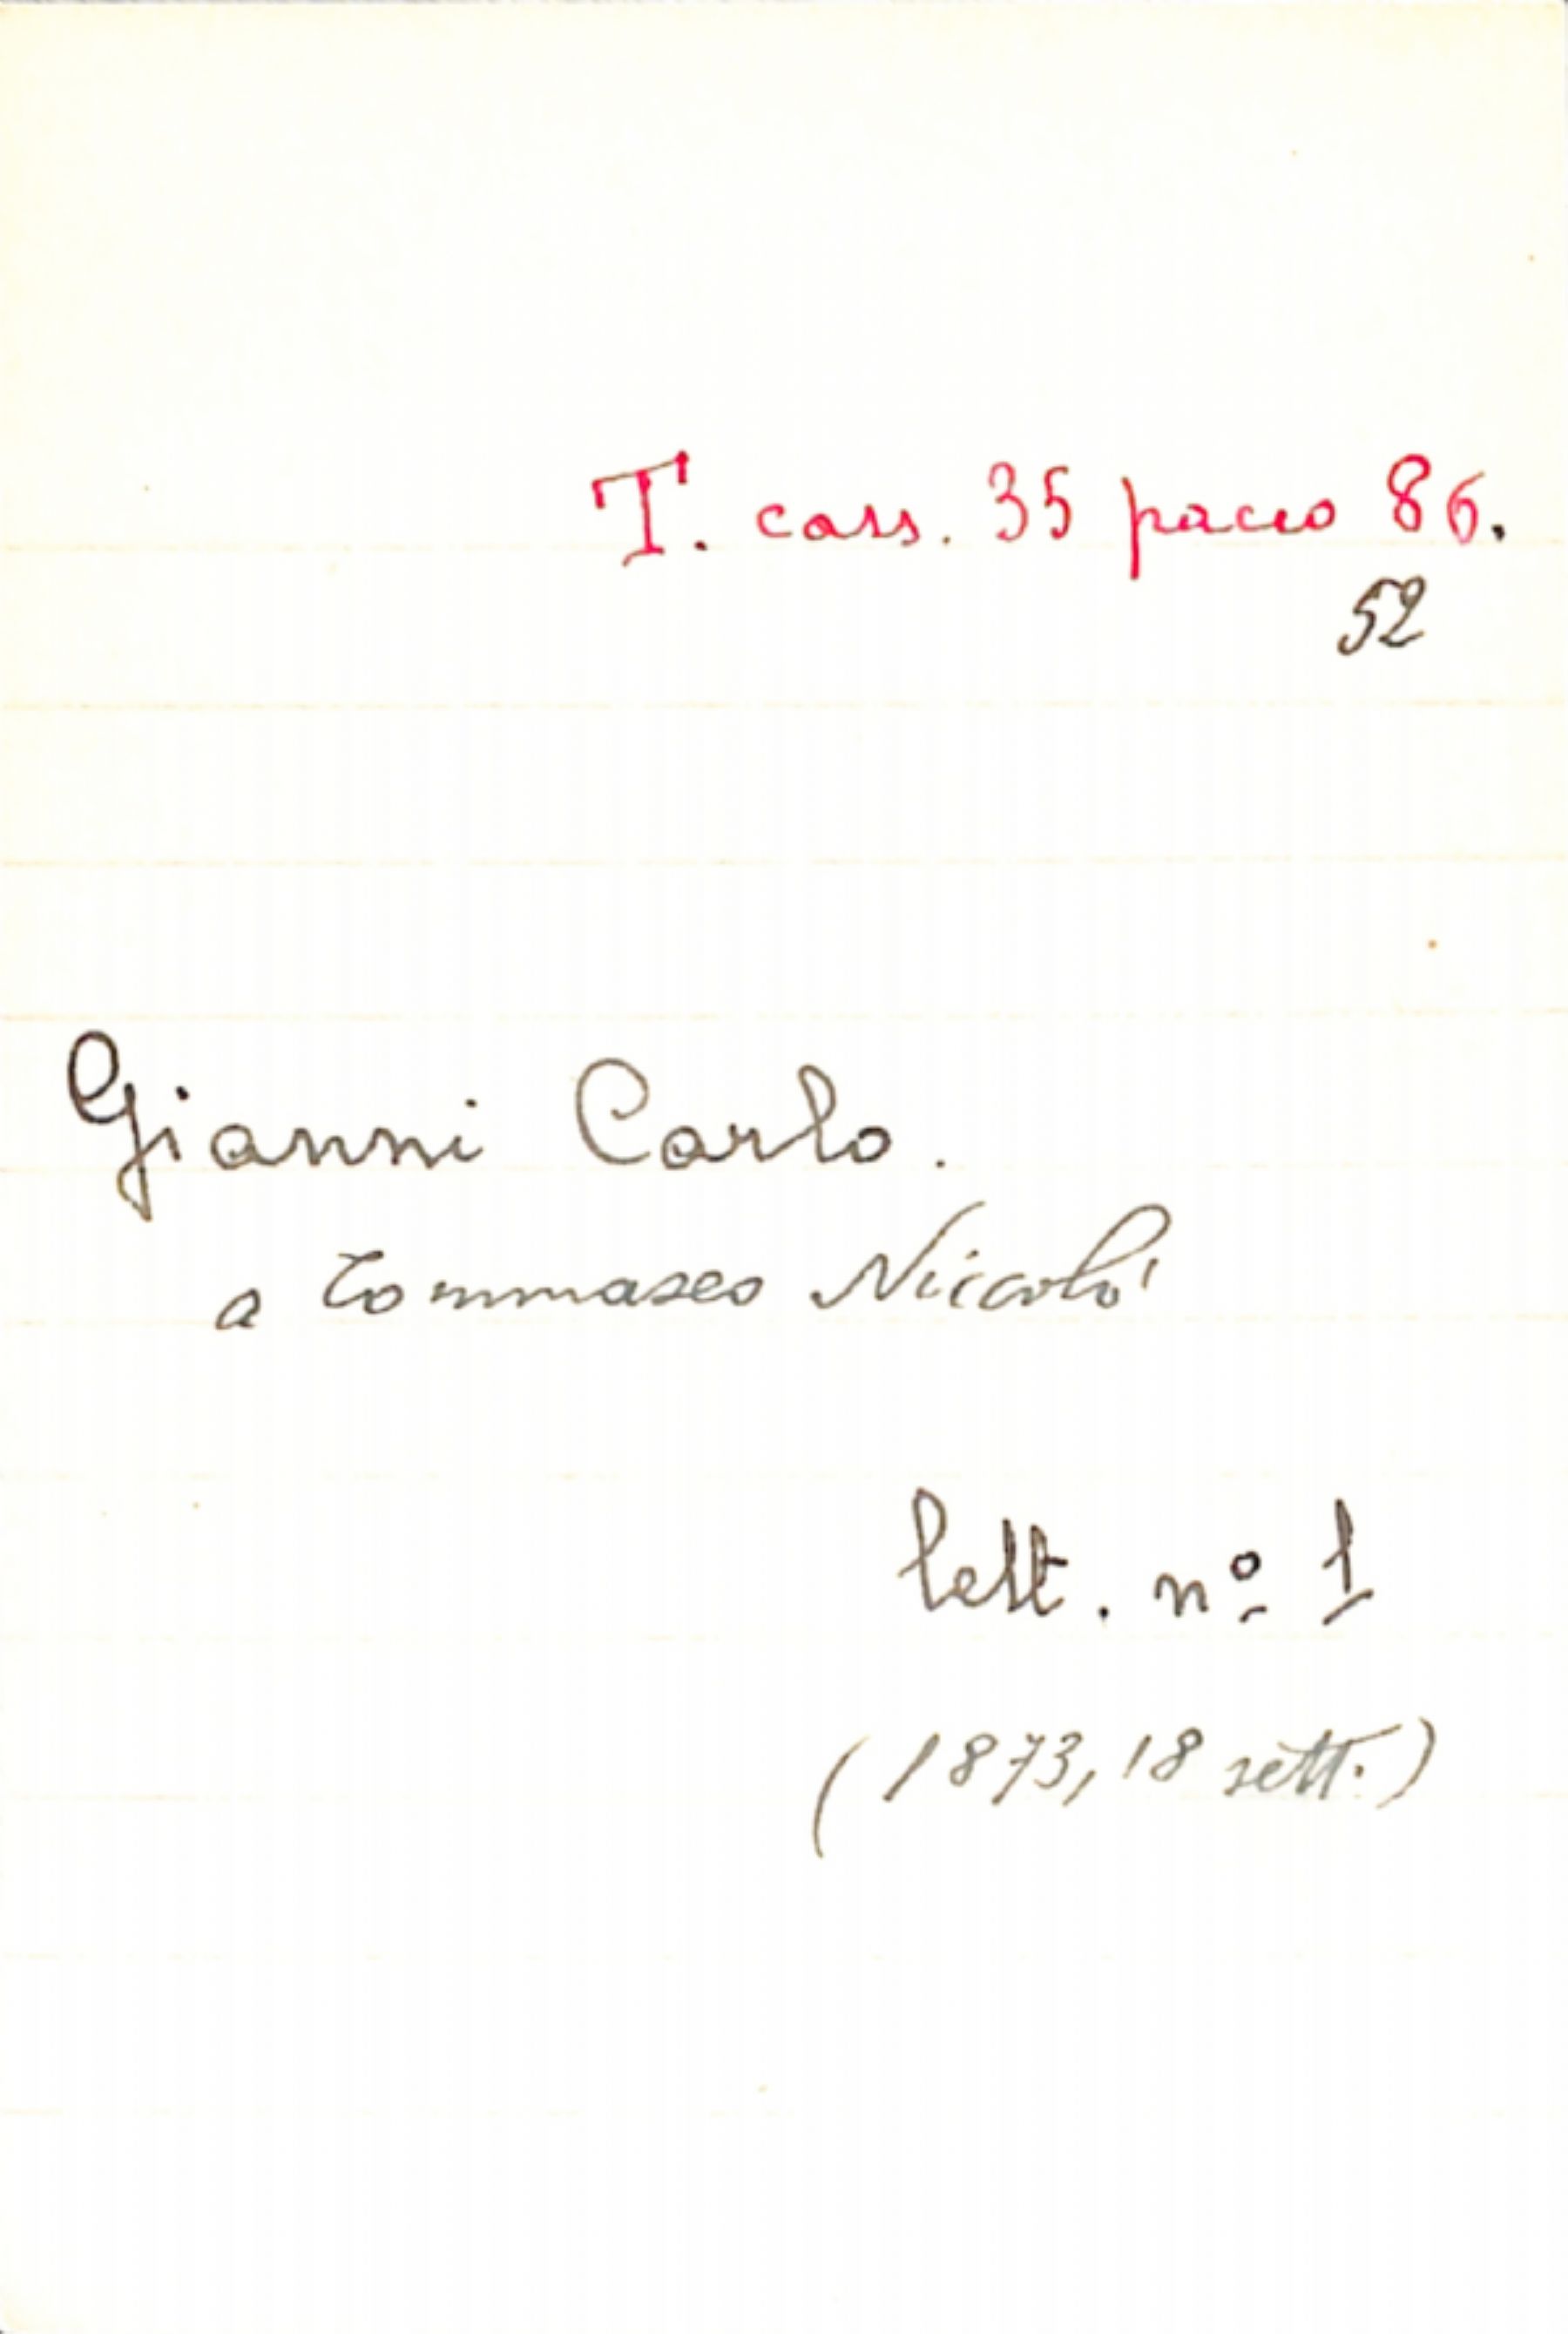 T. cass. 35 pacco 86.
52
Gianni Carlo.
a Tommaseo Niccolò
lett. nº 1
(1873, 18 sett.)